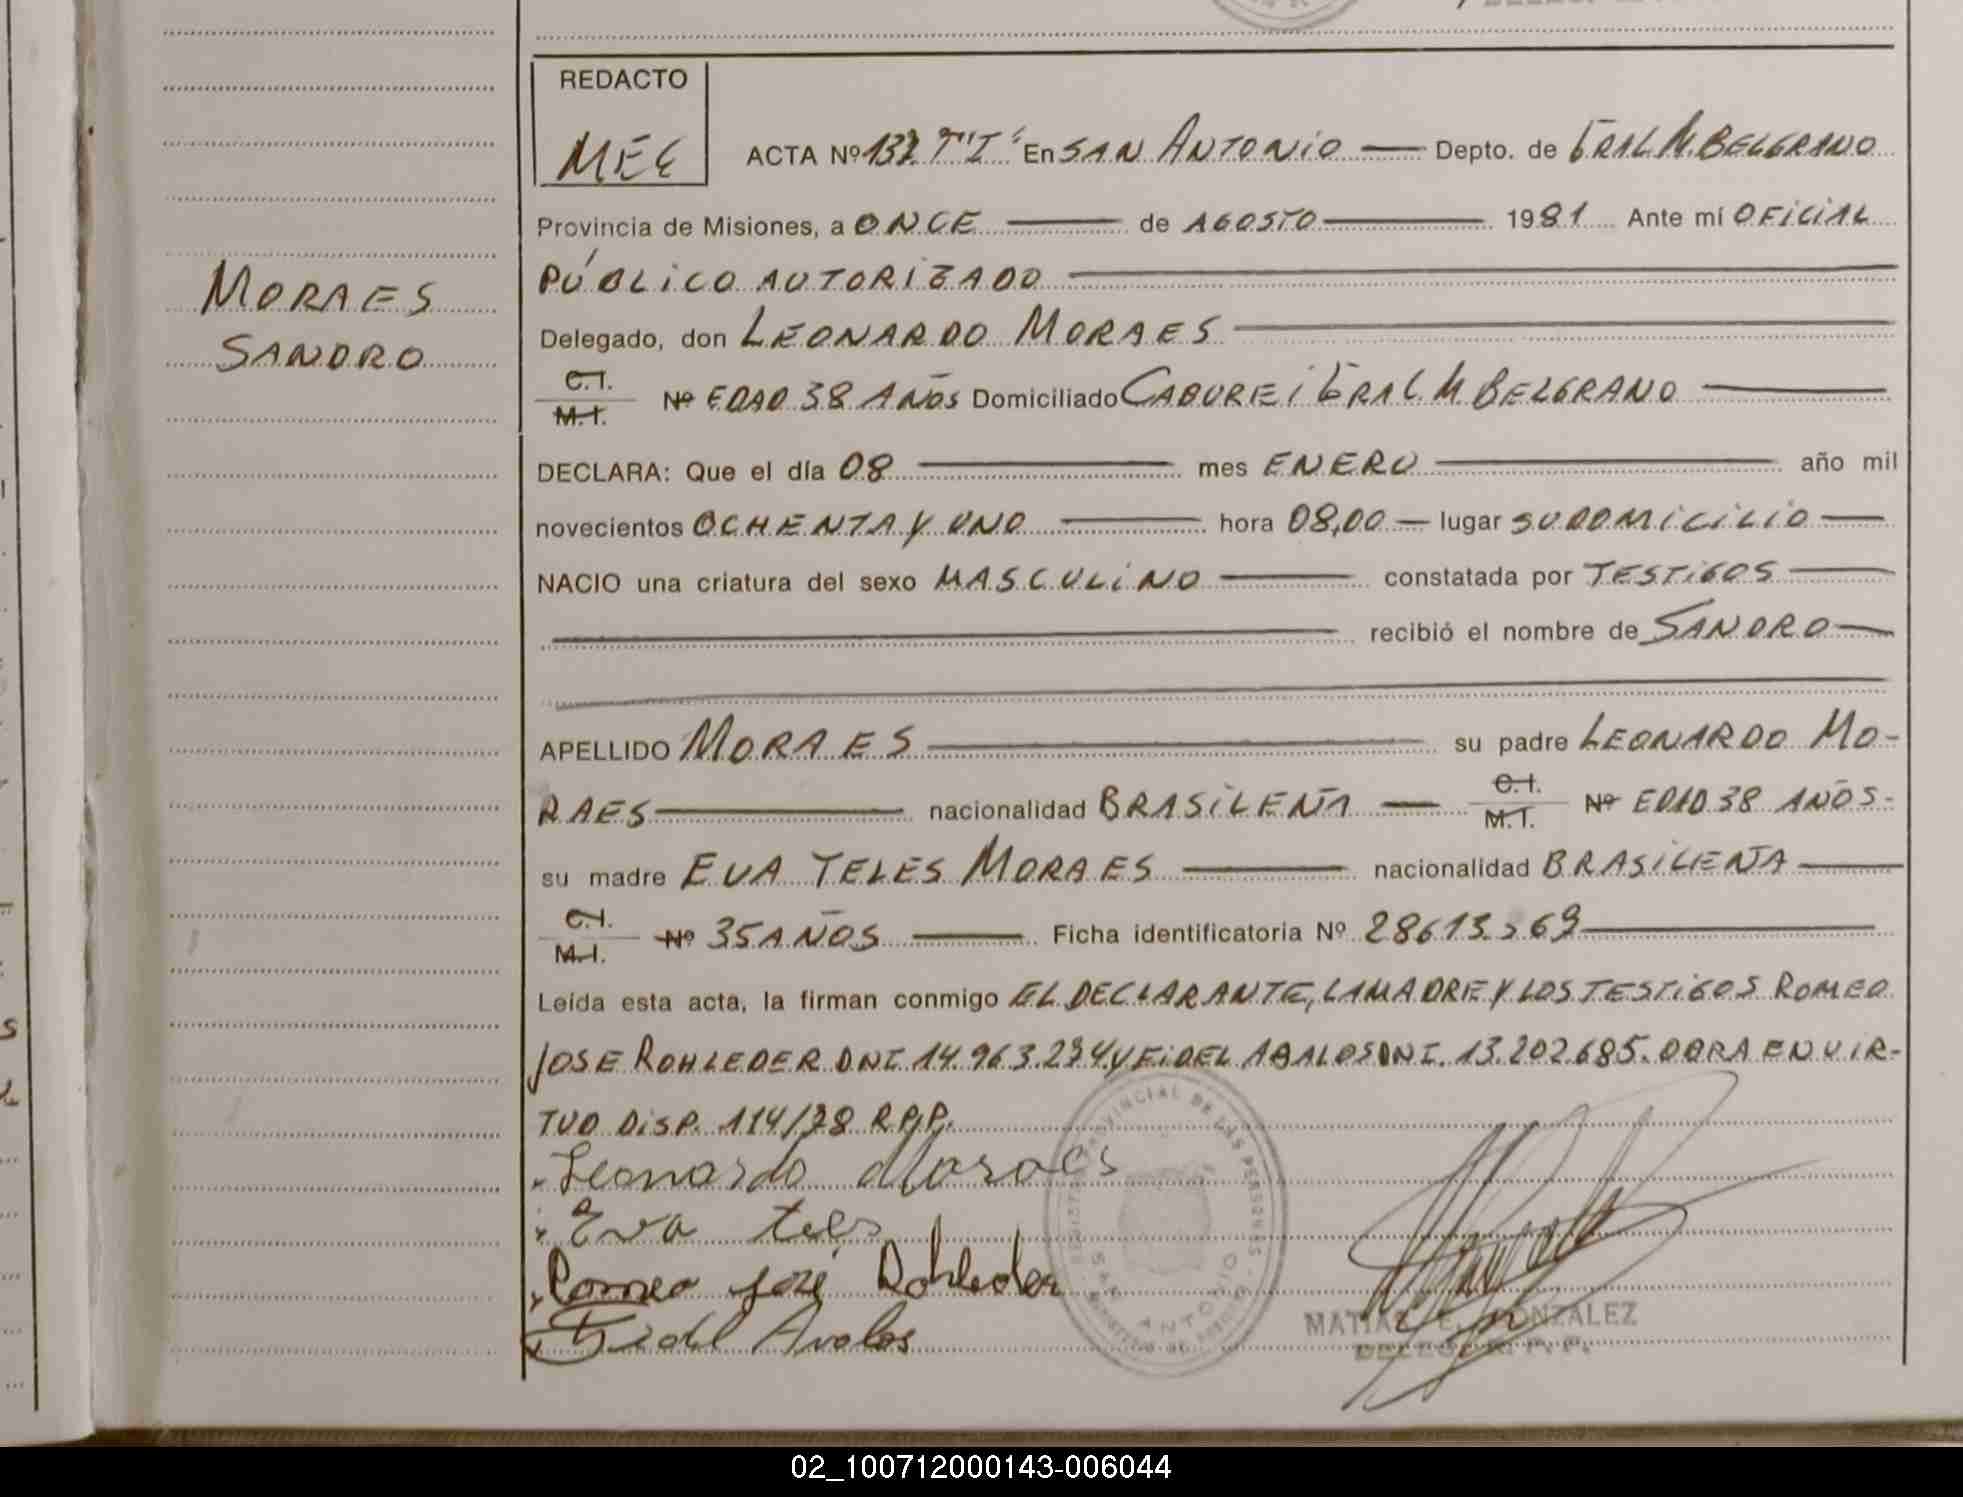 REDACTO
MEG
ACTA Nº 137 T"I" En SAN ANTONIO Depto. de GRAL M. BELGRANO
Provincia de Misiones, a ONCE de AGOSTO 1981 Ante mí OFICIAL
PÚBLICO AUTORIZADO
MORAES
SANDRO
Delegado, don LEONARDO MORAES
C.I.
M.I. Nº EDAD 38 AÑOS Domiciliado CABUREI GRAL M. BELGRANO
DECLARA: Que el día 08 mes ENERO año mil
novecientos OCHENTA Y UNO hora 08,00 lugar SU DOMICILIO
NACIO una criatura del sexo MASCULINO constatada por TESTIGOS
recibió el nombre de SANDRO
APELLIDO MORAES su padre LEONARDO MO-
RAES nacionalidad BRASILEÑA C.I. M.I. Nº EDAD 38 AÑOS-
su madre EVA TELES MORAES nacionalidad BRASILEÑA
C.I.
M.I. Nº 35 AÑOS Ficha identificatoria Nº
Leída esta acta, la firman conmigo EL DECLARANTE, LA MADRE Y LOS TESTIGOS ROMEO
JOSE ROHLEDER DNI. 14.963.234 Y FIDEL ABALOS DNI. 13.202.685. OBRA EN VIR-
TUD DISP. 114/78 R.P.P.
Leonardo Moraes
Eva teles
Romeo José Rohleder
Fidel Avalos
REGISTRO PROVINCIAL DE LAS PERSONAS
SAN ANTONIO
MINISTERIO DE GOBIERNO
MATIAS E. GONZALEZ
02_100712000143-006044